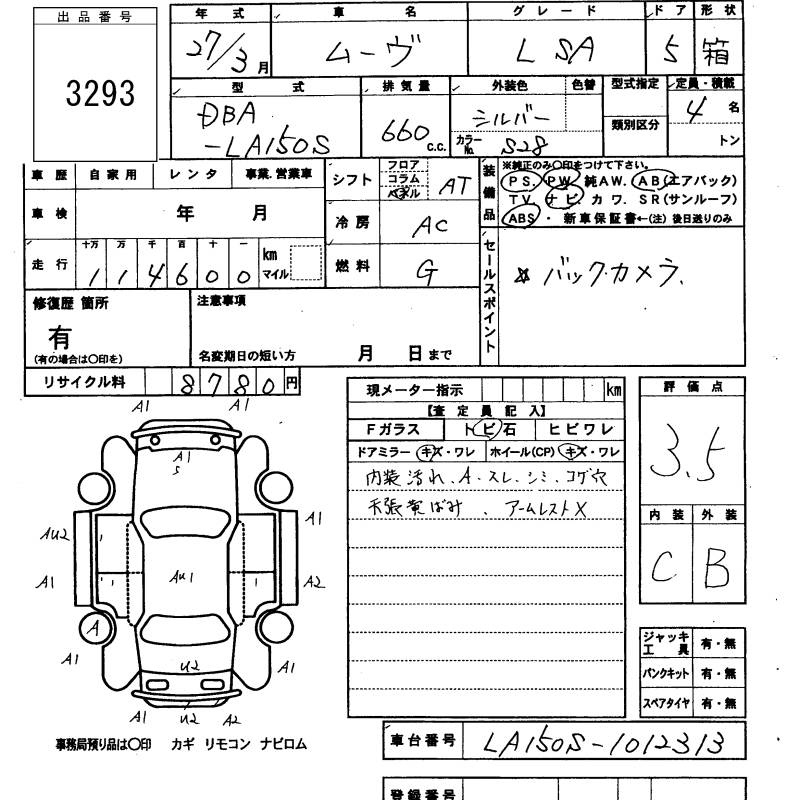 出品番号
3293
年式 車名 グレード ドア 形状
27/3月 ムーヴ L SA 5 箱
型式 排気量 外装色 色替 型式指定 定員・積載
DBA-LA150S 660 c.c. シルバー 類別区分 4名
カラーNo. S28 トン
車歴 自家用 レンタ 事業.営業車
シフト フロア コラム パネル AT
装備品
※純正のみ〇印をつけて下さい。
PS. PW. 純AW. AB(エアバック)
TV. ナビ. カワ. SR(サンルーフ)
ABS ・ 新車保証書←(注) 後日送りのみ
車検 年 月
冷房 AC
走行 十万 万 千 百 十 一
1 1 4 6 0 0 km マイル
燃料 G
セールスポイント
☆ バックカメラ.
修復歴 箇所
有
(有の場合は〇印を)
注意事項
名変期日の短い方 月 日まで
リサイクル料 8780円
現メーター指示 km
【査定員記入】
Fガラス トビ石 ヒビワレ
ドアミラー キズ・ワレ ホイール(CP) キズ・ワレ
内装汚れ、A.スレ.シミ.コゲ穴
天張黄ばみ 、 アームレストX
評価点
3.5
内装 外装
C B
A1 A1
A1
S
A1
AU2
A1 AU1 A2
A
A1 U2 A1
A1 U2 A2
ジャッキ工具 有・無
パンクキット 有・無
スペアタイヤ 有・無
事務局預り品は〇印 カギ リモコン ナビロム
車台番号 LA150S-1012313
登録番号